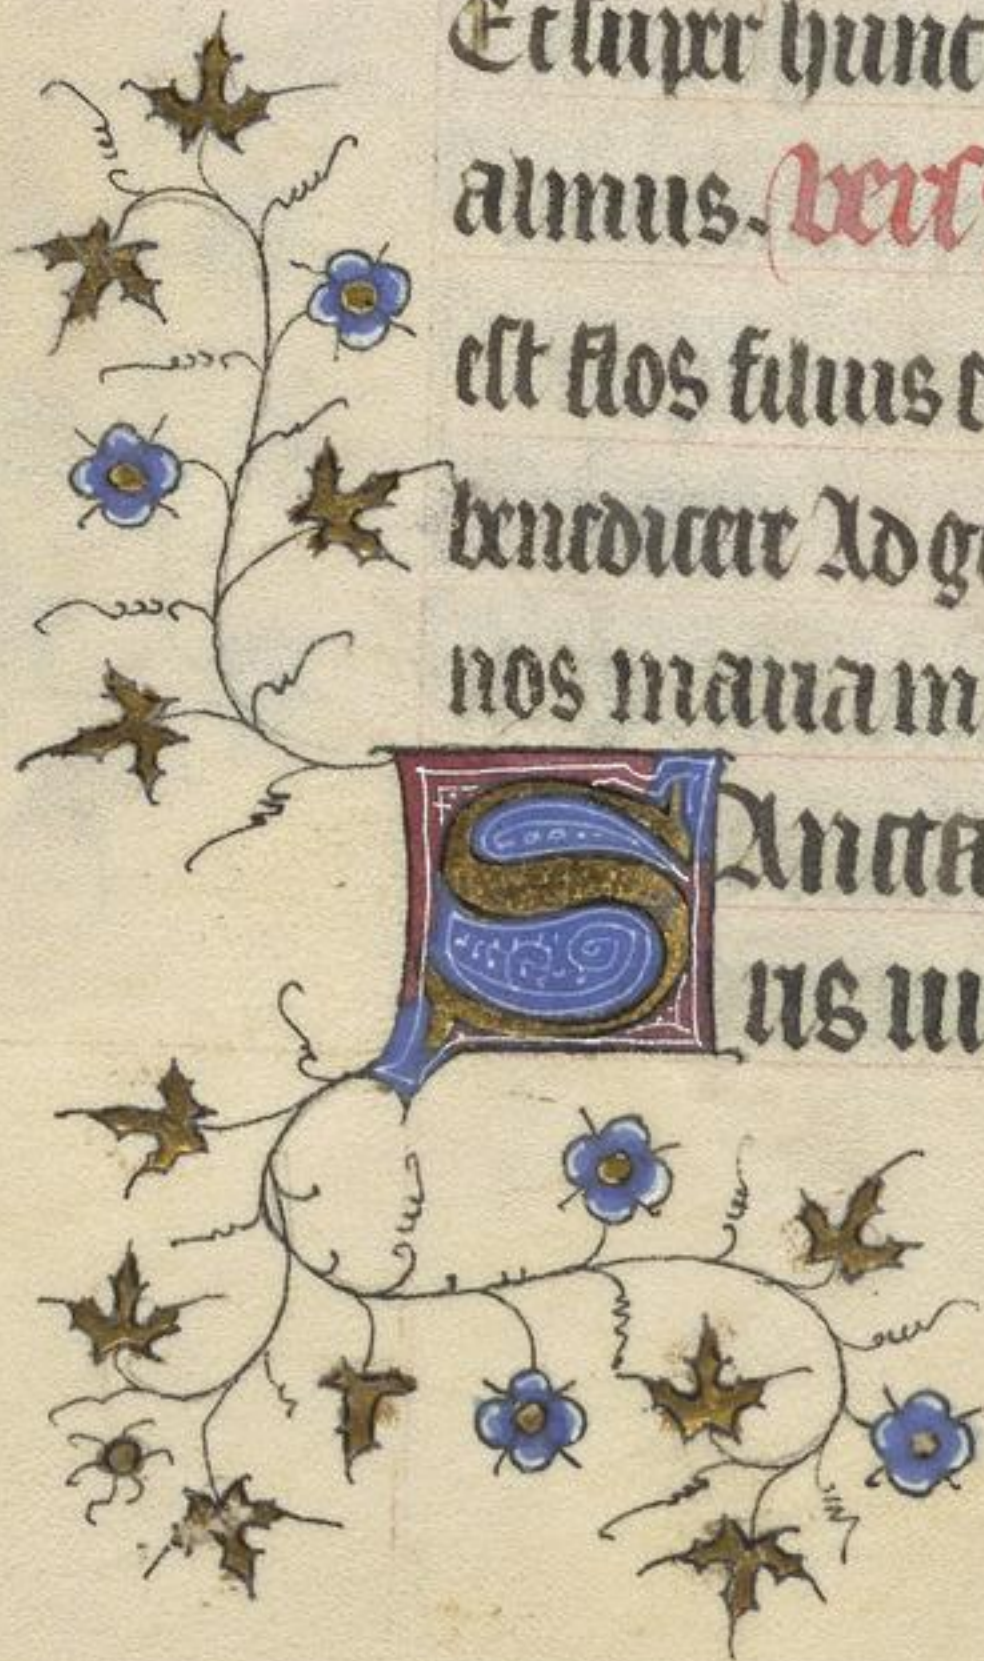 Et super hunc
almus. vers
est flos filius e
benediceir Ad g
nos mariam
SAncta
us in